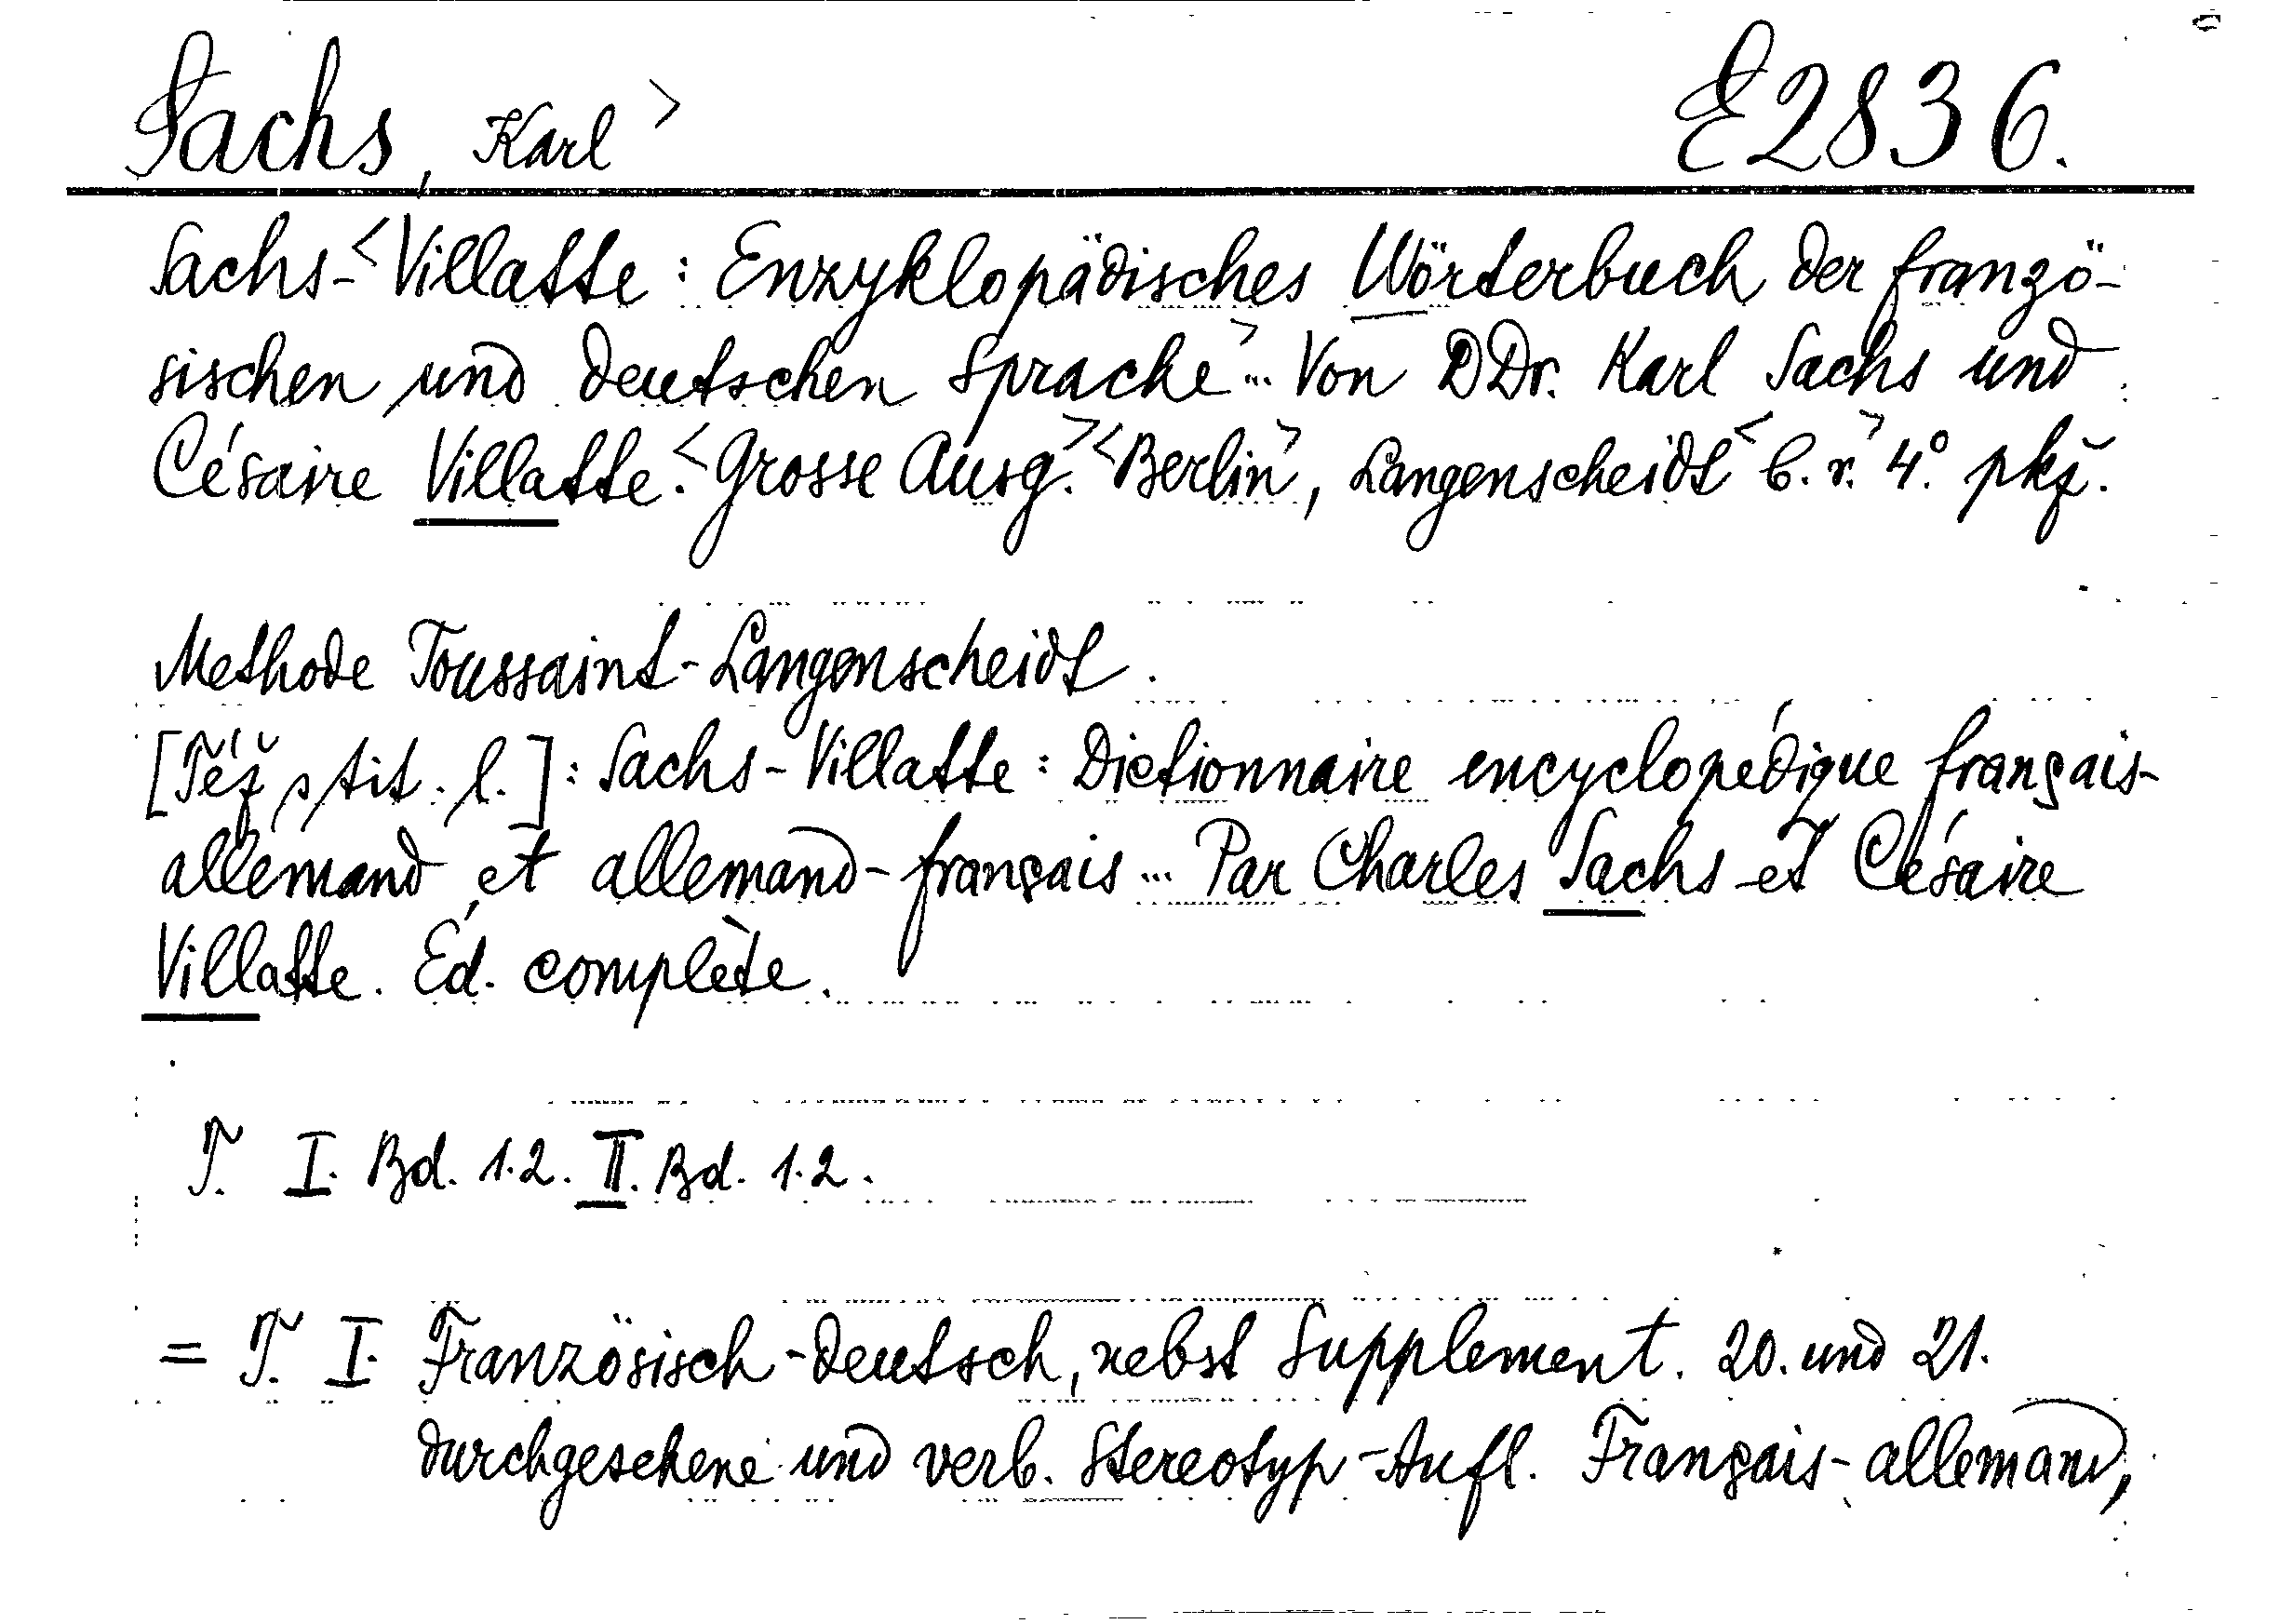 Sachs, Karl > E 2836.
Sachs-<Villatte: Enzyklopädisches Wörterbuch der franzö-
sischen und deutschen Sprache>... Von DDr. Karl Sachs und
Césaire Villatte.<Grosse Ausg.><Berlin>, Langenscheidt <b. r.> 4°. pkž.
Methode Toussaint-Langenscheidt.
[Též s tit. l.]: Sachs-Villatte: Dictionnaire encyclopédique français-
allemand et allemand-français ... Par Charles Sachs et Césaire
Villatte. Éd. complète.
T. I. Bd. 1.2. II. Bd. 1.2.
= T. I. Französisch-deutsch, nebst Supplement. 20. und 21.
durchgesehene und verb. Stereotyp-Aufl. Français-allemand,